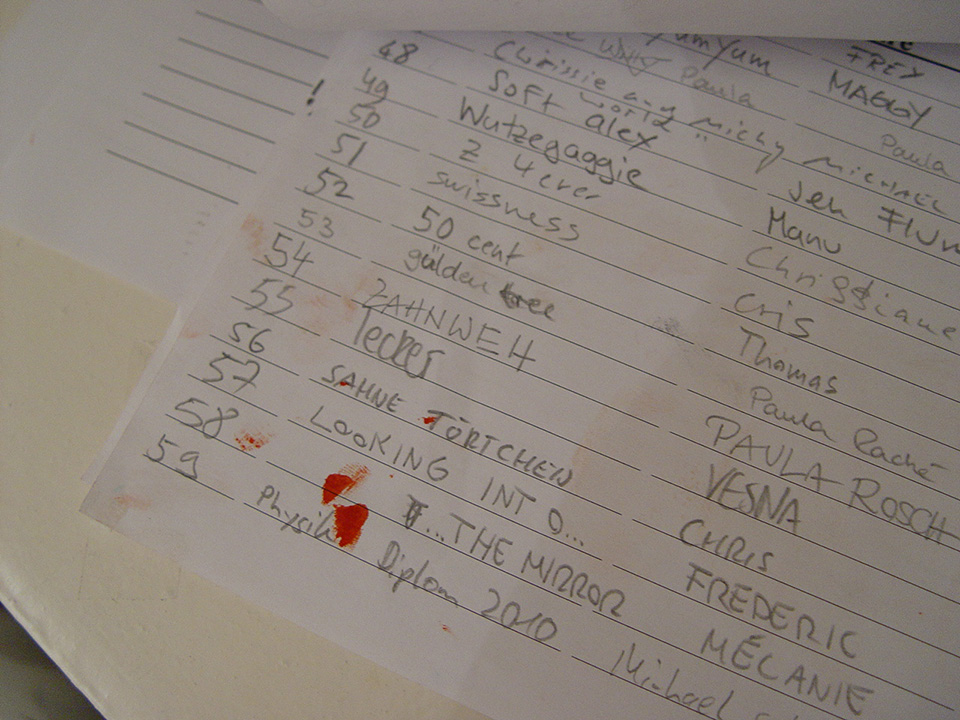 FREY
YumYum MAGGY
Paula Paula
Chrissie any world " Michy MICHAEL
48 Soft alex Jen
49 Wutzegaggie Manu
! 50 Z 4ever Christiane
51 swissness Cris
52 50 cent Thomas
53 gülden tree Paula Raché
54 ZAHNWEH PAULA ROSCH
55 lecker VESNA
56 SAHNE TÖRTCHEN CHRIS
57 LOOKING INTO... FREDERIC
58 ...THE MIRROR MÉLANIE
59 Physik Diplom 2010 Michael